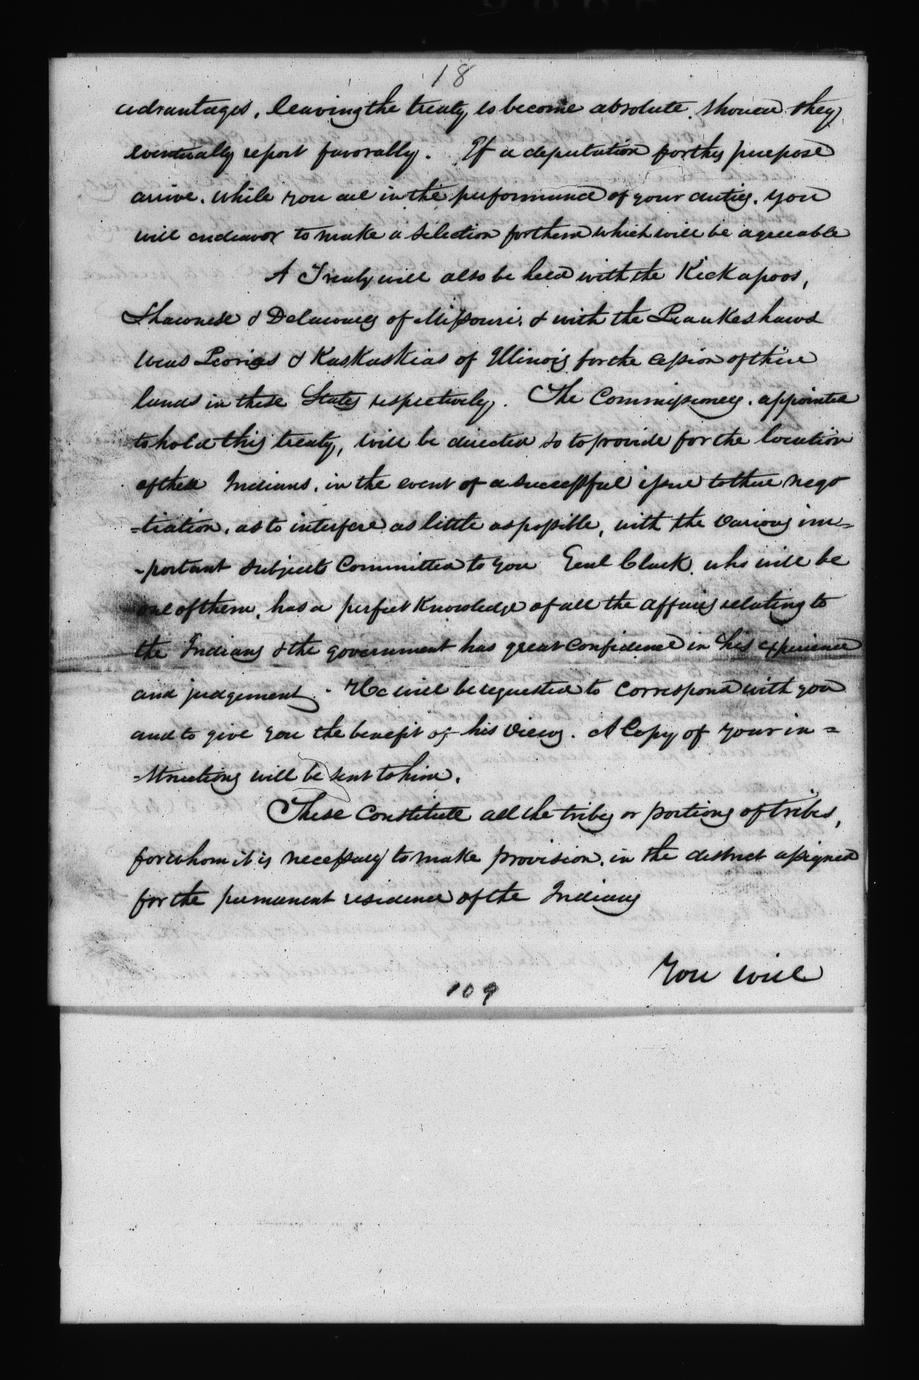 18
advantages, leaving the treaty to become absolute, should they
eventually report favorably. If a deputation for this purpose
arrive, while you are in the performance of your duties, you
will endeavor to make a selection for them which will be agreeable
A Treaty will also be held with the Kickapoos,
Shawnese & Delawares of Missouri, & with the Piankeshaws
Weas Peorias & Kaskaskias of Illinois for the cession of their
lands in these States respectively. The Commissioners, appointed
to hold this treaty, will be directed so to provide for the location
of these Indians, in the event of a successful issue to their nego
-tiation, as to interfere as little as possible, with the various im-
-portant subjects committed to you Genl Clark, who will be
one of them, has a perfect knowledge of all the affairs relating to
the Indians & the government has great confidence in his experience
and judgement. He will be requested to correspond with you
and to give you the benefit of his views. A Copy of your in=
=structions will be sent to him.
These constitute all the tribes or portions of tribes,
for whom it is necessary to make provision, in the district assigned
for the permanent residence of the Indians
You will
109